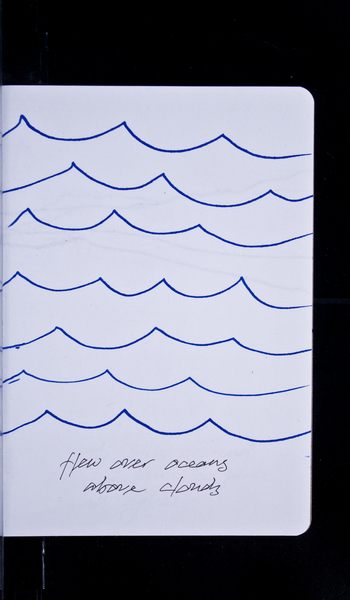 flew over oceans
above clouds